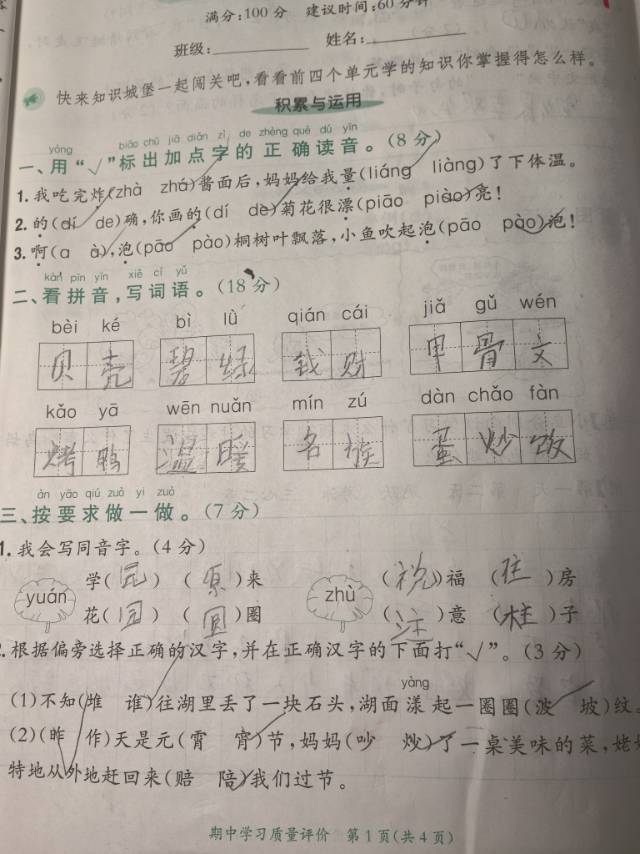 满分:100分 建议时间:60分钟
班级: 姓名:
快来知识城堡一起闯关吧,看看前四个单元学的知识你掌握得怎么样。
积累与运用
yòng biāo chū jiā diǎn zì de zhèng què dú yīn
一、用“√”标出加点字的正确读音。(8分)
1.我吃完炸(zhà zhá)酱面后,妈妈给我量(liáng liàng)了下体温。
2.的(dí de)确,你画的(dí de)菊花很漂(piāo piào)亮!
3.啊(a à),泡(pāo pào)桐树叶飘落,小鱼吹起泡(pāo pào)泡!
kàn pīn yīn xiě cí yǔ
二、看拼音,写词语。(18分)
bèi ké bì lǜ qián cái jiǎ gǔ wén
贝壳 碧绿 钱财 甲骨文
kǎo yā wēn nuǎn mín zú dàn chǎo fàn
烤鸭 温暖 名族 蛋炒饭
àn yāo qiú zuò yi zuò
三、按要求做一做。(7分)
1.我会写同音字。(4分)
yuán 学( ) (原)来 zhù (祝)福 (住)房
花(园) (圆)圈 (注)意 (柱)子
2.根据偏旁选择正确的汉字,并在正确汉字的下面打“√”。(3分)
yàng
(1)不知(堆 谁)往湖里丢了一块石头,湖面漾起一圈圈(波 坡)纹。
(2)(昨 作)天是元(霄 宵)节,妈妈(吵 炒)了一桌美味的菜,姥
特地从外地赶回来(赔 陪)我们过节。
期中学习质量评价 第1页(共4页)